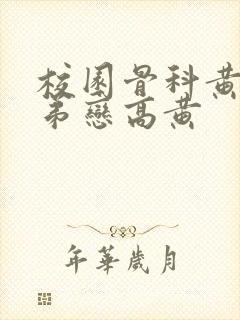 校園骨科黃
弟戀高黃
年華歲月